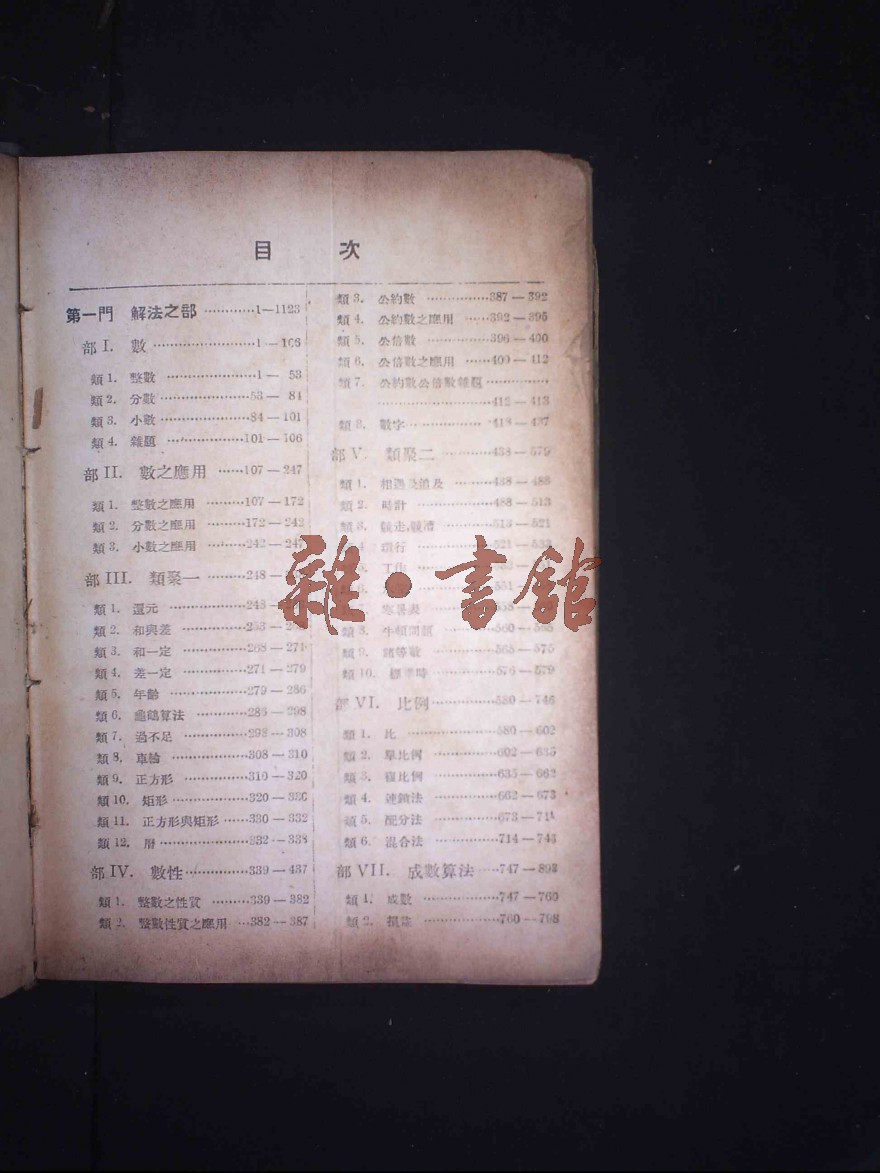 目 次
第一門 解法之部 …………1—1123
部 I. 數 …………………1—106
類 1. 整數 …………………1— 53
類 2. 分數 …………………53— 84
類 3. 小數 …………………84—101
類 4. 雜題 ………………101—106
部 II. 數之應用 ……107—247
類 1. 整數之應用 ………107—172
類 2. 分數之應用 ………172—242
類 3. 小數之應用 ………242—247
部 III. 類聚一 ………248—
類 1. 還元 ………………248—
類 2. 和與差 ……………253—
類 3. 和一定 ……………268—271
類 4. 差一定 ……………271—279
類 5. 年齡 ………………279—286
類 6. 龜鶴算法 …………286—298
類 7. 過不足 ……………298—308
類 8. 車輪 ………………308—310
類 9. 正方形 ……………310—320
類 10. 矩形 ………………320—330
類 11. 正方形與矩形 ……330—332
類 12. 層 …………………332—338
部 IV. 數性 ……………339—437
類 1. 整數之性質 ………339—382
類 2. 整數性質之應用 …382—387
類 3. 公約數 ……………387—392
類 4. 公約數之應用 ……392—395
類 5. 公倍數 ……………396—400
類 6. 公倍數之應用 ……400—412
類 7. 公約數公倍數雜題 ……………
……………………412—413
類 8. 數字 ………………418—437
部 V. 類聚二 …………438—579
類 1. 相遇及追及 ………438—488
類 2. 時計 ………………488—513
類 3. 競走,競漕 …………513—521
行 …………521—533
工作
類 8. 牛頓問題 …………560—568
類 9. 諸等數 ……………568—575
類 10. 標準時 ……………576—579
部 VI. 比例 ……………580—746
類 1. 比 …………………580—602
類 2. 單比例 ……………602—635
類 3. 複比例 ……………635—662
類 4. 連鎖法 ……………662—673
類 5. 配分法 ……………673—71
類 6. 混合法 ……………714—746
部 VII. 成數算法 ……747—898
類 1. 成數 ………………747—760
類 2. 損益 ………………760—798
雜·書館